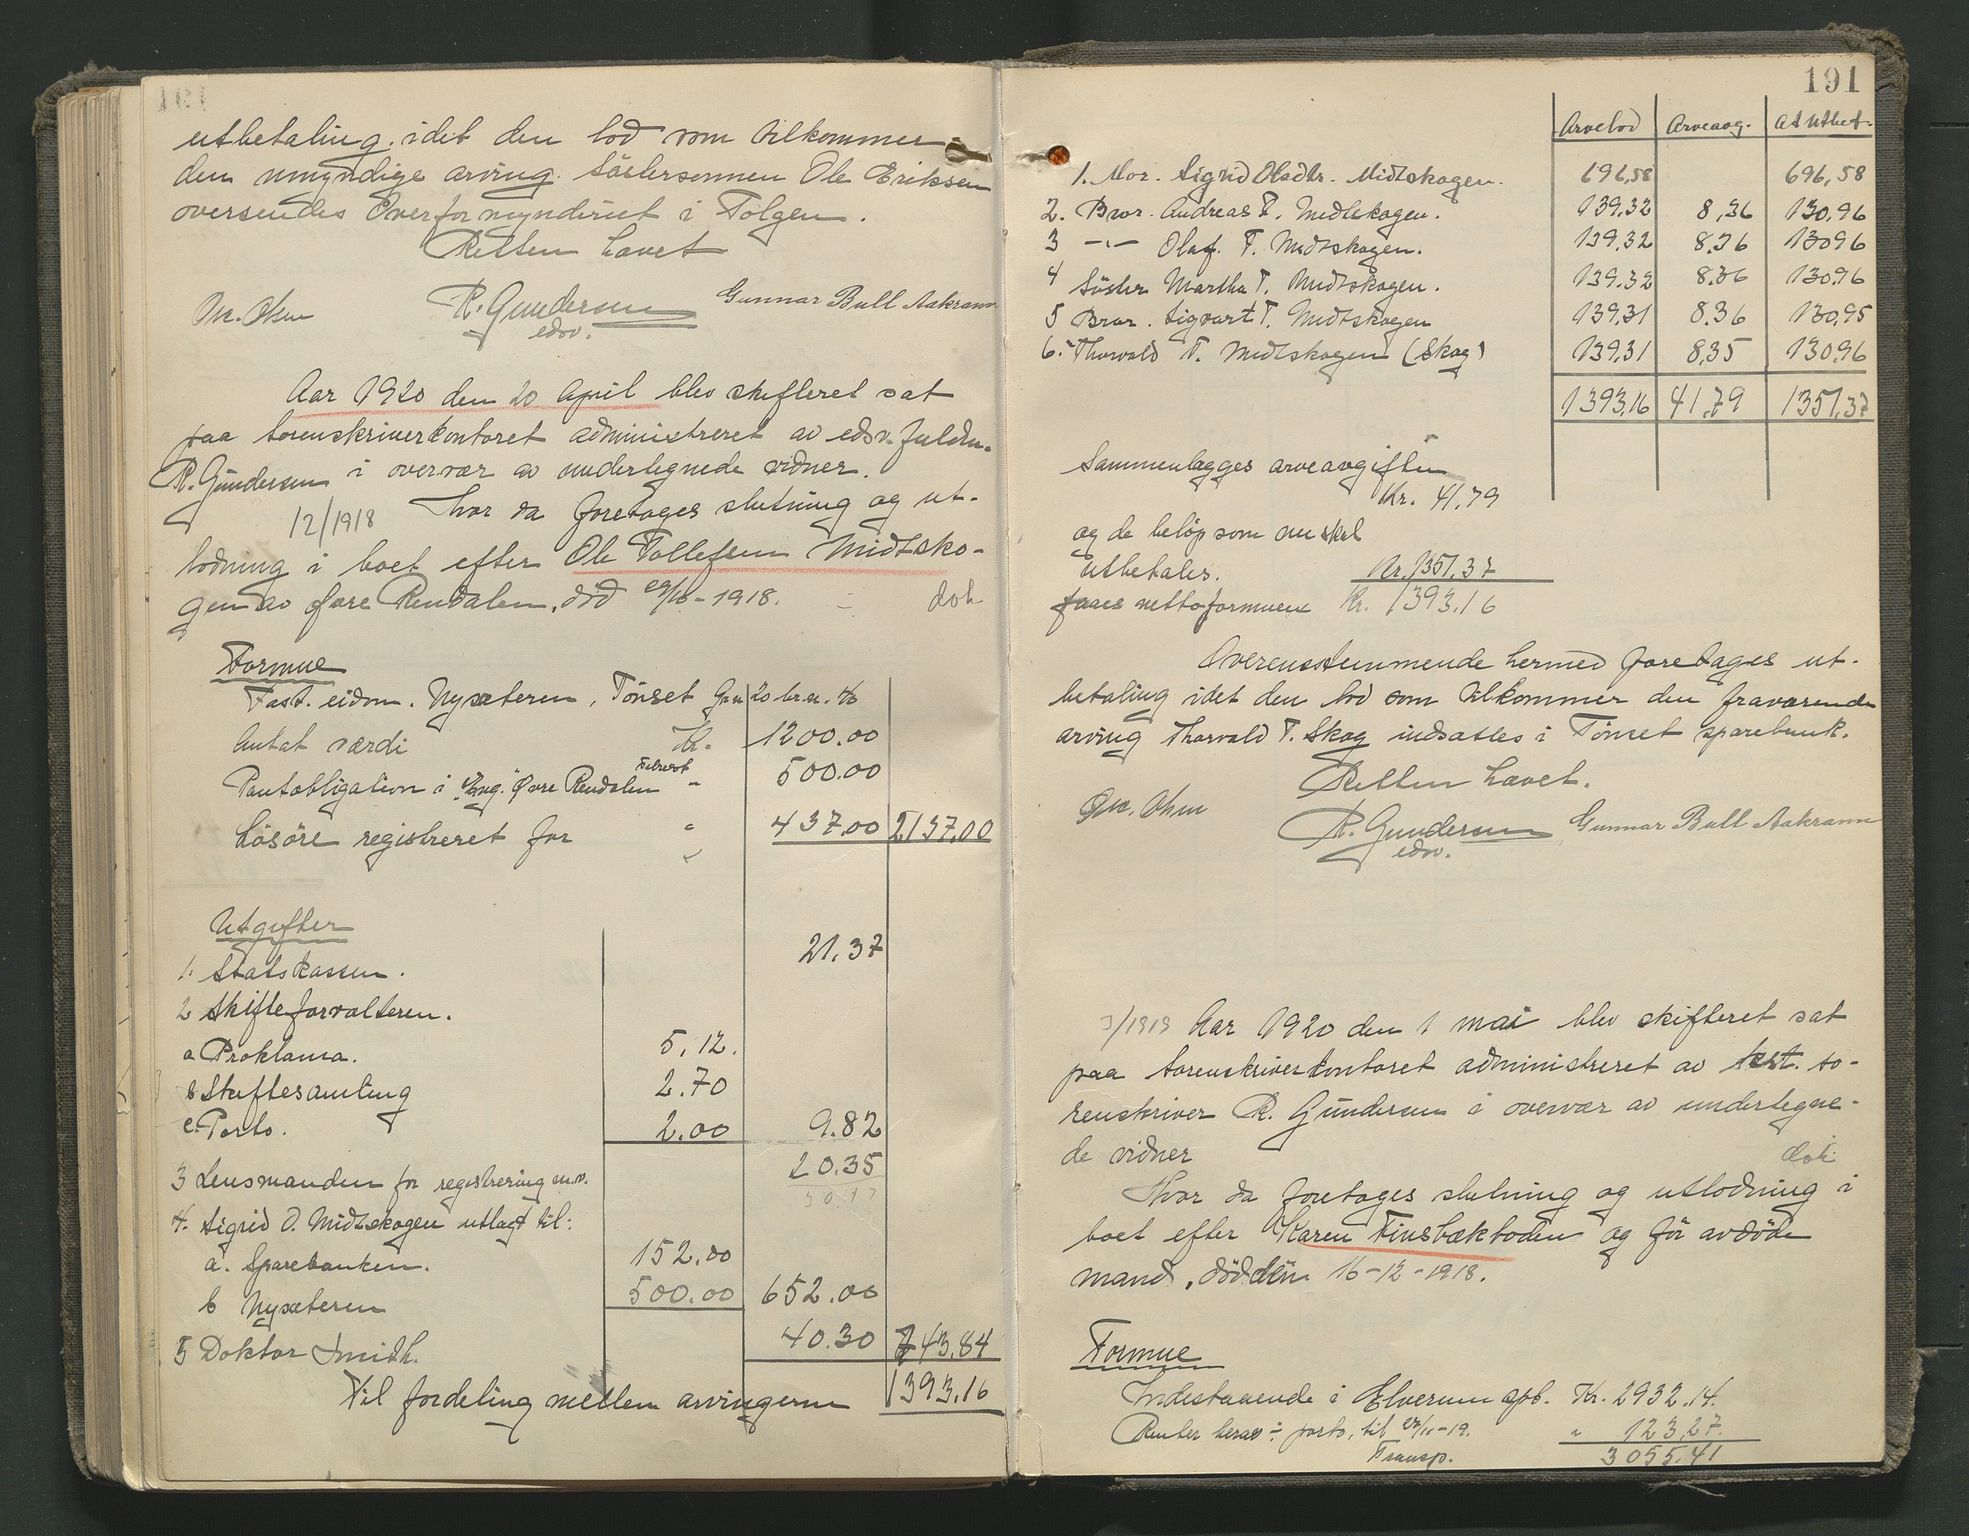 utbetaling, idet den lod som tilkommer
den umyndige arving. Söstersønnen Ole Eriksen
oversendes Overformynderiet i Tolgen.
Retten hævet
R. Gundersen Gunnar Bull Aakrann
edsv.
Aar 1920 den 20 April blev skifteret sat
paa sorenskriverkontoret administreret av edsv. fuldm.
R. Gundersen i overvær av undertegnede vidner.
12/1918 Hvor da foretages slutning og ut-
lodning i boet efter Ole Tollefsen Midtsko-
gen av Øvre Rendalen, död 29/10-1918. dok
Formue
Fast. eidom. Nysæteren, Tönset Gn. 20 br.n.
Antat værdi Kr. 1200.00
Pantobligation i "Eng" Øvre Rendalen " 500.00
Lösöre registreret for " 437.00 2137.00
Utgifter
1. Statskassen. 21.37
2 Skifteforvalteren.
a Proklama. 5.12.
b Skiftesamling 2.70
c. Porto. 2.00 9.82
3 Lensmanden for registrering m.v. 20.35
4. Sigrid O. Midtskogen utlagt til:
a. Sparebanken. 152.00
b Nysæteren 500.00 652.00
5 Doktor Smith. 40.30 743,84
Til fordeling mellem arvingerne 1393.16
191
Arvelod Arveavg. At utbet.
1. Mor. Sigrid Olsdtr. Midtskogen. 696,58 696,58
2. Bror. Andreas T. Midtskogen. 139,32 8,36 130,96
3 -"- Olaf. T. Midtskogen. 139,32 8.36 130.96
4 Söster Martha T. Midtskogen. 139,32 8.36 130.96
5 Bror. Sigvart T. Midtskogen 139,31 8.36 130,95
6. Thorvald T. Midtskogen (Skog) 139,31 8,35 130.96
1393,16 41,79 1351,37
Sammenlægges arveavgiften
Kr. 41.79
og de belöp som nu skal
utbetales. Kr. 1351,37
faaes nettoformuen Kr. 1393.16
Overensstemmende hermed foretages ut-
betaling idet den lod som tilkommer den fraværende
arving Thorvald T. Skog indsættes i Tönset sparebank.
Retten hævet.
R. Gundersen Gunnar Bull Aakrann
edsv.
3/1919 Aar 1920 den 1 mai blev skifteret sat
paa sorenskriverkontoret administreret av kst. so-
renskriver R. Gundersen i overvær av undertegne-
de vidner dok
Hvor da foretages slutning og utlodning i
boet efter Karen Finsbækboden og för avdöde
mand, död den 16-12-1918.
Formue
Indestaaende i Elverum spb. Kr. 2932.14.
Renter herav ÷ porto, til -19. " 123,27.
Transp. 3055.41